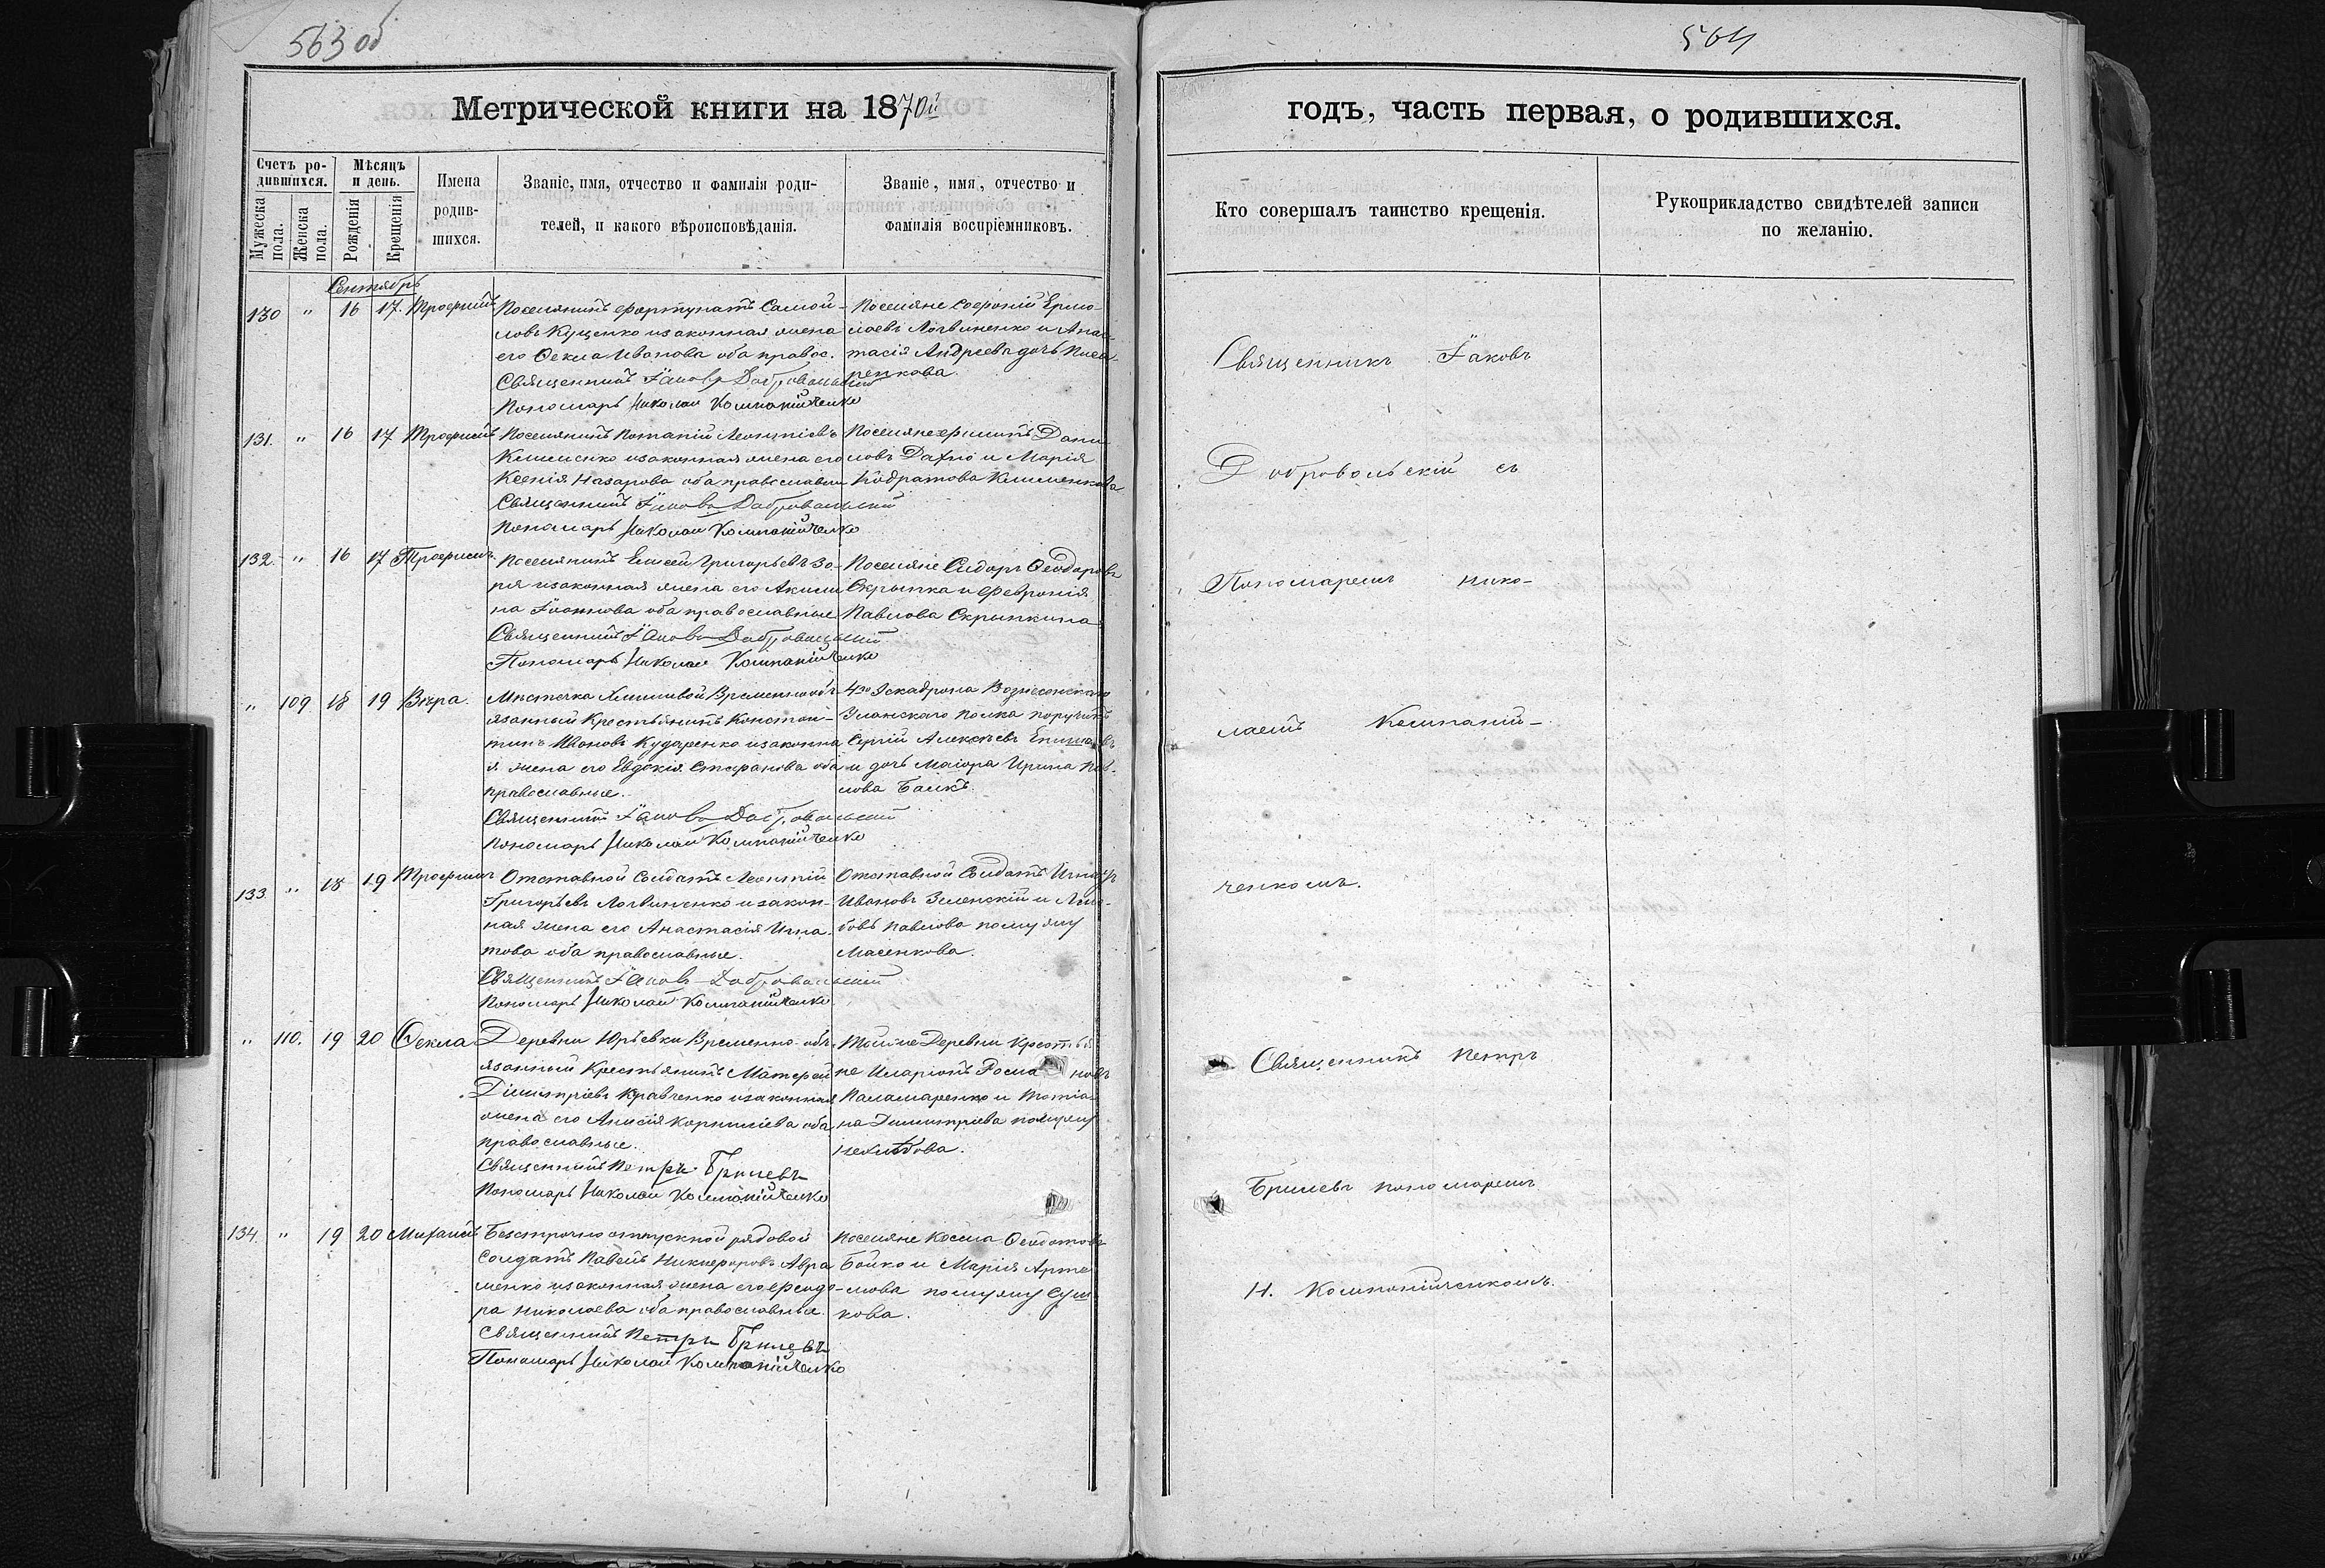 563 об
Метрической книги на 1870й
Счетъ ро-
дившихся.
Мужеска
пола.
Женска
пола.
Мѣсяцъ
и день.
Рожденія
Крещенія
Имена
родив-
шихся.
Званіе, имя, отчество и фамилія роди-
телей, и какого вѣроисповѣданія.
Званіе, имя, отчество и
фамилія воспріемниковъ.
Сентябрь
130 " 16 17. Трофимъ
Поселянинъ Фортунатъ Самой-
ловъ Куценко изаконная жена
его Ѳекла Иванова оба правос.
Священникъ Іаковъ Добровольскій
Пономарь Николай Компанійченко
Поселяне Софроній Ермо-
лаевъ Логвиненко и Анас-
тасія Андреева дочь Писа-
ренкова.
131. " 16 17 Трофимъ
Поселянинъ Потапій Леонтіевъ
Клименко изаконная жена его
Ксенія Назарова оба православн
Священникъ Іаковъ Добровольскій
Пономарь Николай Компанійченко
Поселяне Филипъ Дани
ловъ Дахно и Марія
Кодратова Клименкова
132. " 16 17 Трофимъ
Поселянинъ Елисей Григорьевъ Зо-
ря изаконная жена его Акили
на Іоаннова оба православные
Священникъ Іаковъ Добровольскій
Пономарь Николай Компанійченко
Поселяне Сидоръ Ѳеодоровъ
Скрыпка и Февронія
Павлова Скрыпкина
" 109 18 19 Вѣра.
Мѣстечка Хмѣлевой Временнообъ-
язанный Крестьянинъ Констан-
тинъ Ивановъ Кударенко изаконна
я жена его Евдокія Стефанова оба
православные.
Священникъ Іаковъ Добровольскій
Пономарь Николай Компанійченко
4го Эскадрона Вознесенскаго
Уланскаго полка поручикъ
Сергій Алексѣевъ
и дочь Маіора Ирина Пав-
лова Балкъ.
133. " 18 19 Трофимъ
Отставной Солдатъ Леонтій
Григорьевъ Логвиненко изакон-
ная жена его Анастасія Игна-
това оба православные.
Священникъ Іаковъ Добровольскій
Пономарь Николай Компанійченко
Отставной Солдатъ Игнатъ
Ивановъ Зеленскій и Лю-
бовь Павлова помужу
Масенкова.
" 110. 19 20 Ѳекла
Деревни Юрьевки Временно-объ-
язанный Крестьянинъ Матфей
Димитріевъ Кравченко изаконная
жена его Анисія Корниліева оба
православные.
Священникъ Петръ Брилевъ
Пономарь Николай Компанійченко
Тойже Деревни Крестья
не Иларіонъ Рома новъ
Паламаренко и Татіа
на Димитріева помужу
134. " 19 20 Михаилъ
Безсрочно отпускной рядовой
Солдатъ Павелъ Никифоровъ Авра
менко изаконная жена его Феодо-
ра Николаева оба православные
Священникъ Петръ Брилевъ
Пономарь Николай Компанійченко
Поселяне Косма Ѳедотовъ
Бойко и Марія Арте
мова помужу Суш
кова.
564
годъ, часть первая, о родившихся.
Кто совершалъ таинство крещенія.
Рукоприкладство свидѣтелей записи
по желанію.
Священникъ Іаковъ
Добровольскій съ
Пономаремъ Нико-
лаемъ Компаній-
ченкомъ.
Священникъ Петръ
Брилевъ пономаремъ
Н. Компанійченкомъ.